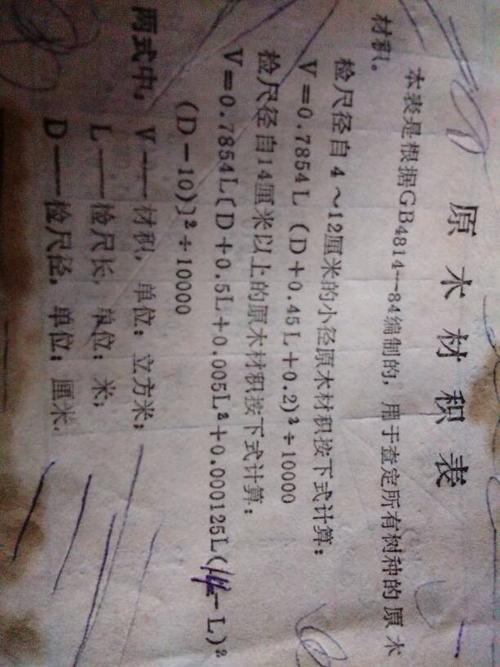 原木材积表
本表是根据GB4814—84编制的，用于查定所有树种的原木
材积。
检尺径自4～12厘米的小径原木材积按下式计算：
V＝0.7854L（D＋0.45L＋0.2)²÷10000
检尺径自14厘米以上的原木材积按下式计算：
V＝0.7854L[D＋0.5L＋0.005L²＋0.000125L(14－L)²
(D－10)]²÷10000
两式中，V——材积，单位：立方米；
L——检尺长，单位：米；
D——检尺径，单位：厘米.